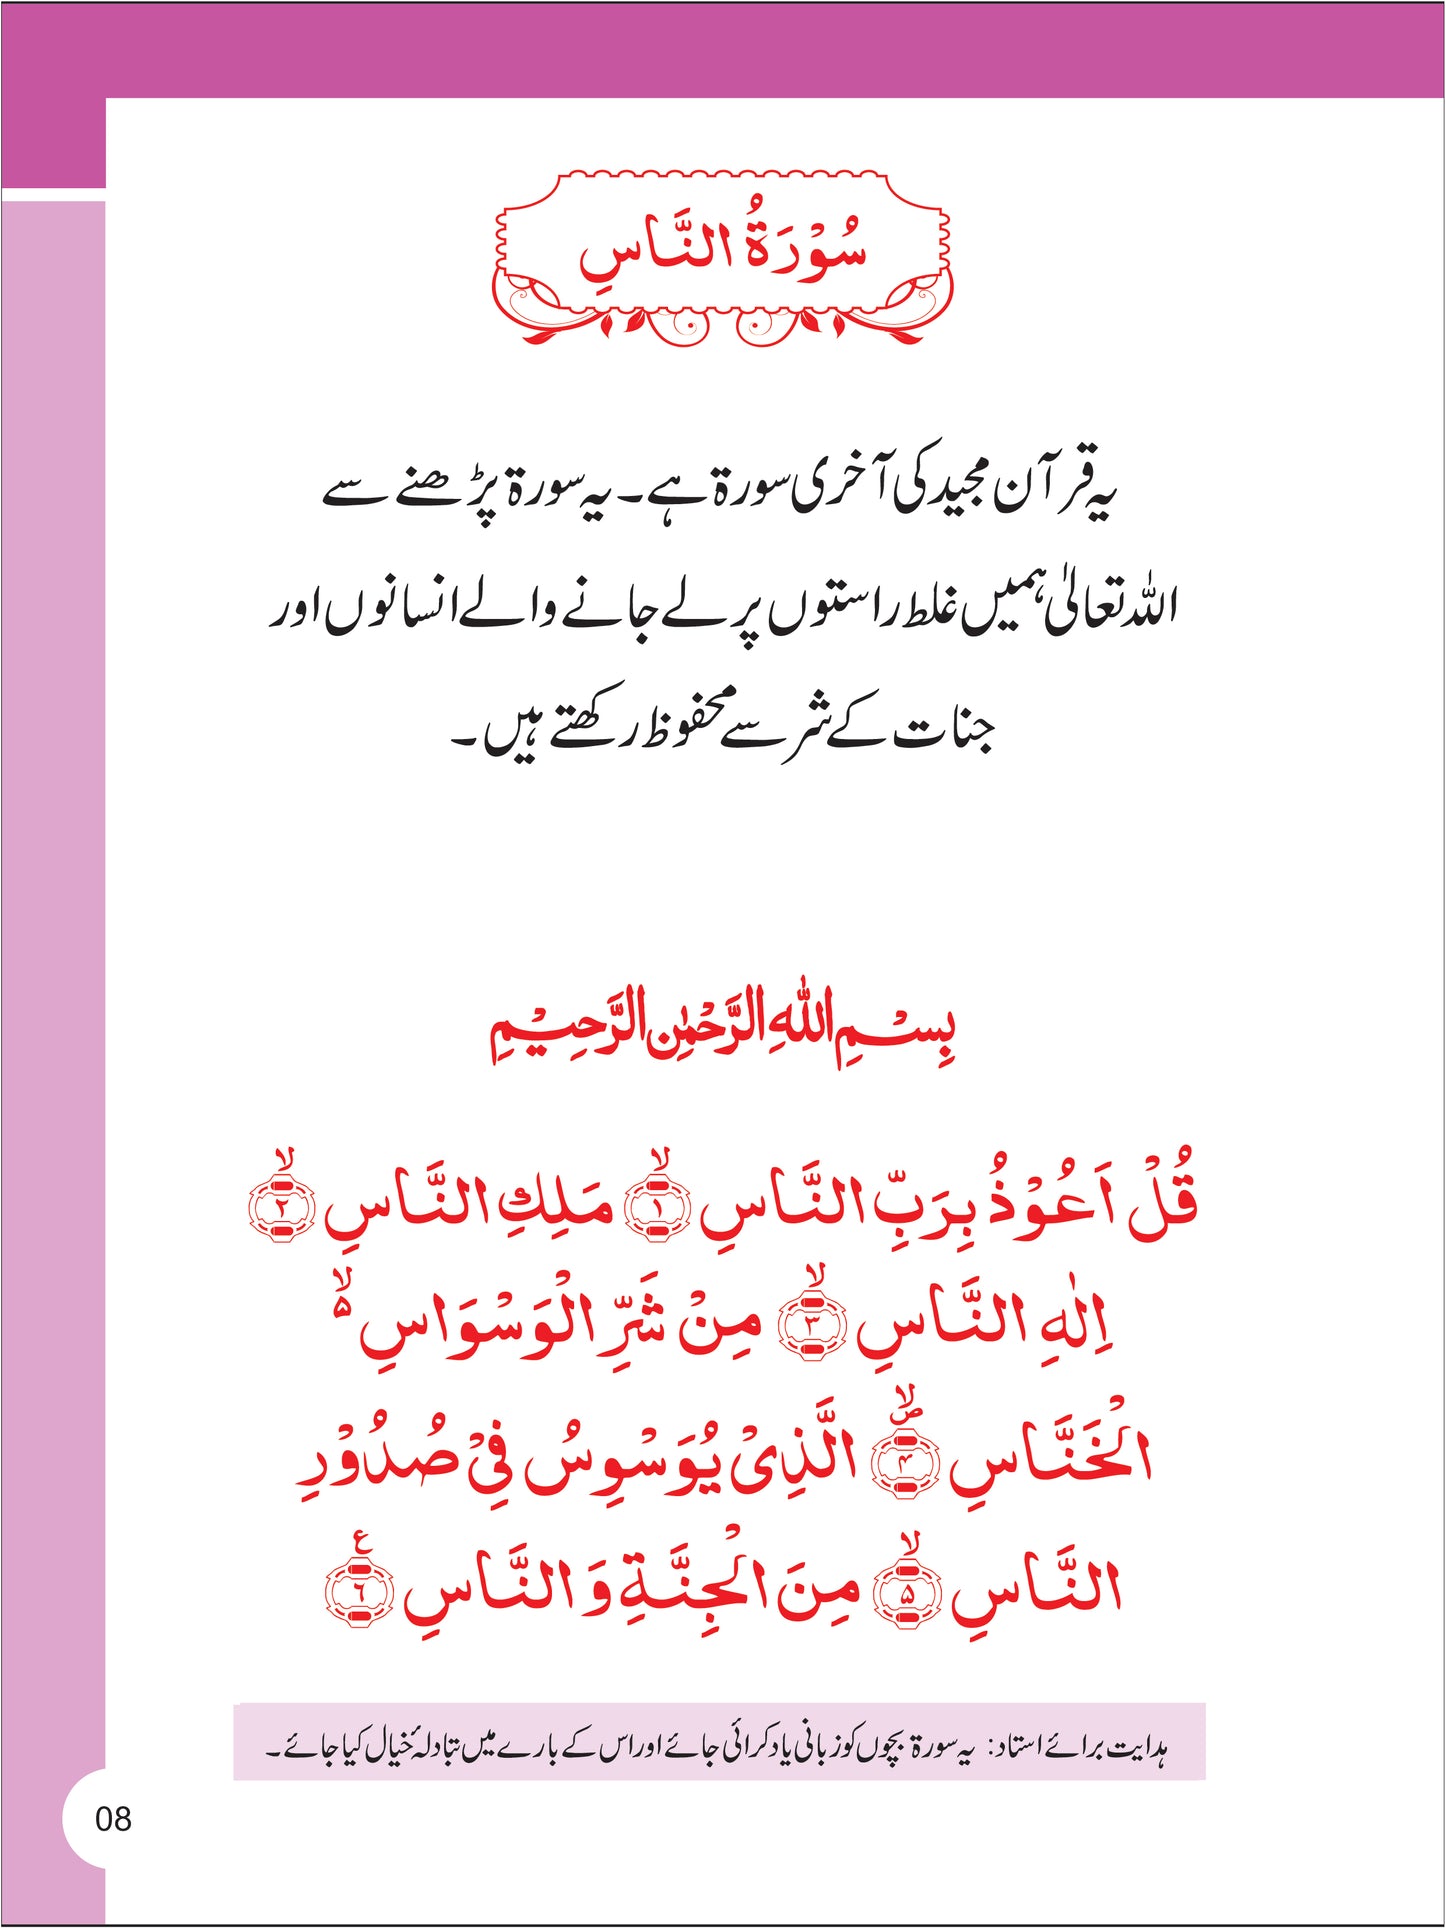 سُوْرَةُ النَّاسِ
یہ قرآن مجید کی آخری سورۃ ہے۔ یہ سورۃ پڑھنے سے
اللہ تعالیٰ ہمیں غلط راستوں پر لے جانے والے انسانوں اور
جنات کے شر سے محفوظ رکھتے ہیں۔
بِسْمِ اللهِ الرَّحْمٰنِ الرَّحِيْمِ
قُلْ اَعُوْذُ بِرَبِّ النَّاسِ ۙ﴿۱﴾ مَلِكِ النَّاسِ ۙ﴿۲﴾
اِلٰهِ النَّاسِ ۙ﴿۳﴾ مِنْ شَرِّ الْوَسْوَاسِ ۵ۙ
الْخَنَّاسِ ۪ۙ﴿۴﴾ الَّذِیْ یُوَسْوِسُ فِیْ صُدُوْرِ
النَّاسِ ۙ﴿۵﴾ مِنَ الْجِنَّةِ وَ النَّاسِ ﴿۶﴾ ع
ہدایت برائے استاد: یہ سورۃ بچوں کو زبانی یاد کرائی جائے اور اس کے بارے میں تبادلۂ خیال کیا جائے۔
08